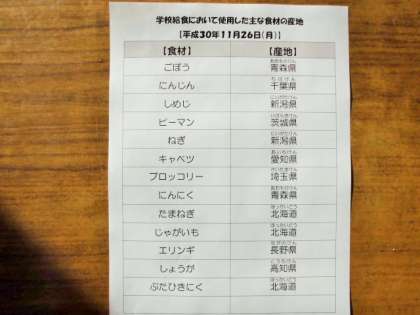 学校給食において使用した主な食材の産地
【平成30年11月26日(月)】
【食材】 【産地】
ごぼう 青森県
にんじん 千葉県
しめじ 新潟県
ピーマン 茨城県
ねぎ 新潟県
キャベツ 愛知県
ブロッコリー 埼玉県
にんにく 青森県
たまねぎ 北海道
じゃがいも 北海道
エリンギ 長野県
しょうが 高知県
ぶたひきにく 北海道